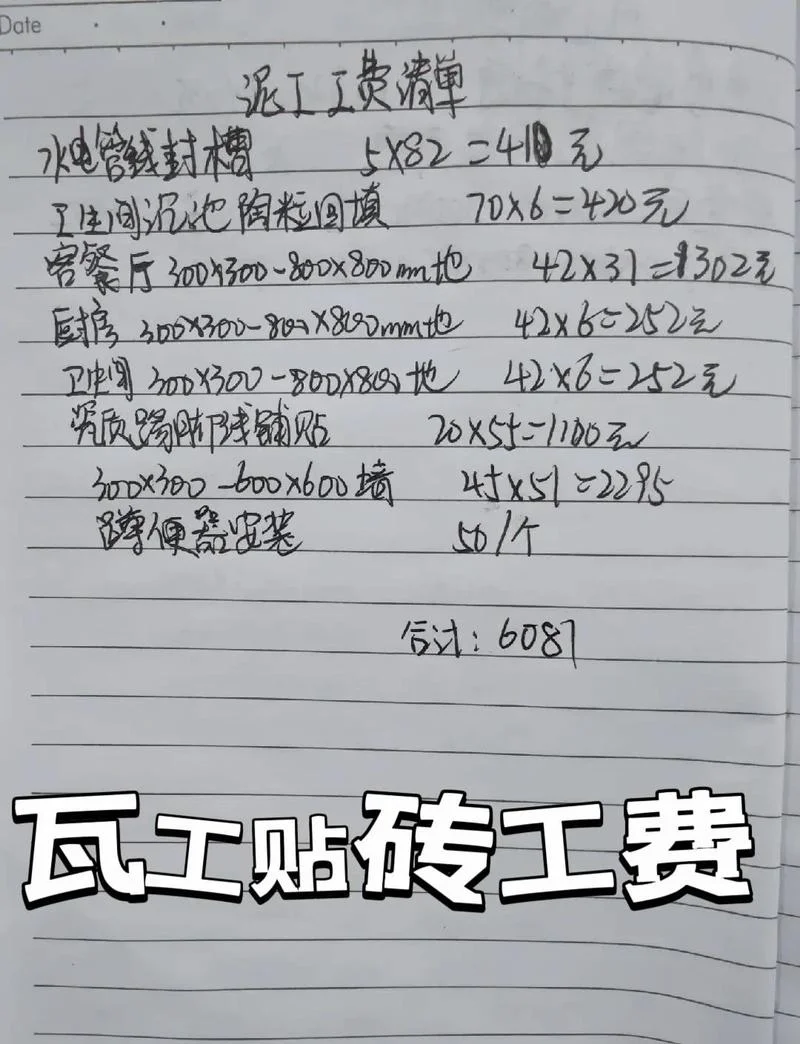 Date
泥工工费清单
水电管线封槽 5×82=410元
卫生间沉池陶粒回填 70×6=420元
客餐厅 300×300-800×800mm地 42×31=1302元
厨房 300×300-800×800mm地 42×6=252元
卫生间 300×300-800×800地 42×6=252元
瓷质踢脚线铺贴 20×55=1100元
300×300-600×600墙 45×51=2295
蹲便器安装 50/个
合计:6081
瓦工贴砖工费